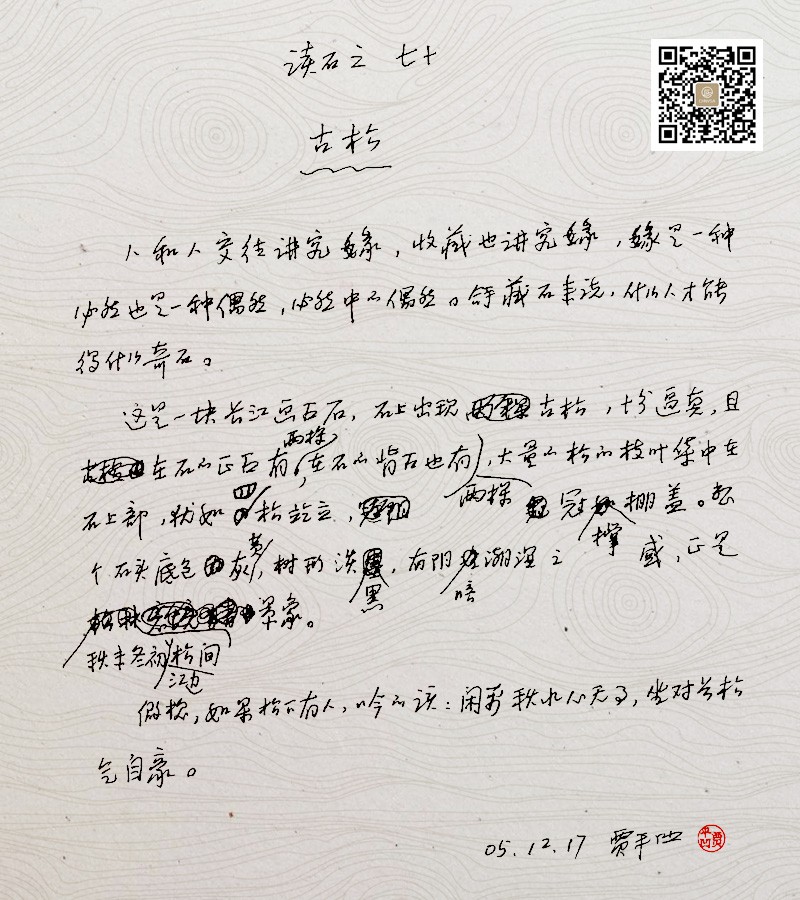 读石之 七十
古松
人和人交往讲究缘，收藏也讲究缘，缘是一种
必然也是一种偶然，必然中的偶然。拿藏石来说，什么人才能
得什么奇石。
这是一块长江画面石，石上出现古松，十分逼真，且
在石的正面有两棵，在石的背面也有两棵，大量的松的枝叶集中在
石上部，状如四松站立，冠撑棚盖。整
个石头底色灰黄，树形淡黑，有阴暗潮湿之感，正是
秋末冬初江边景象。
做想，如果松下有人，吟的该：闲看秋水心无事，坐对长松
气自豪。
05.12.17 贾平凹
贾平凹